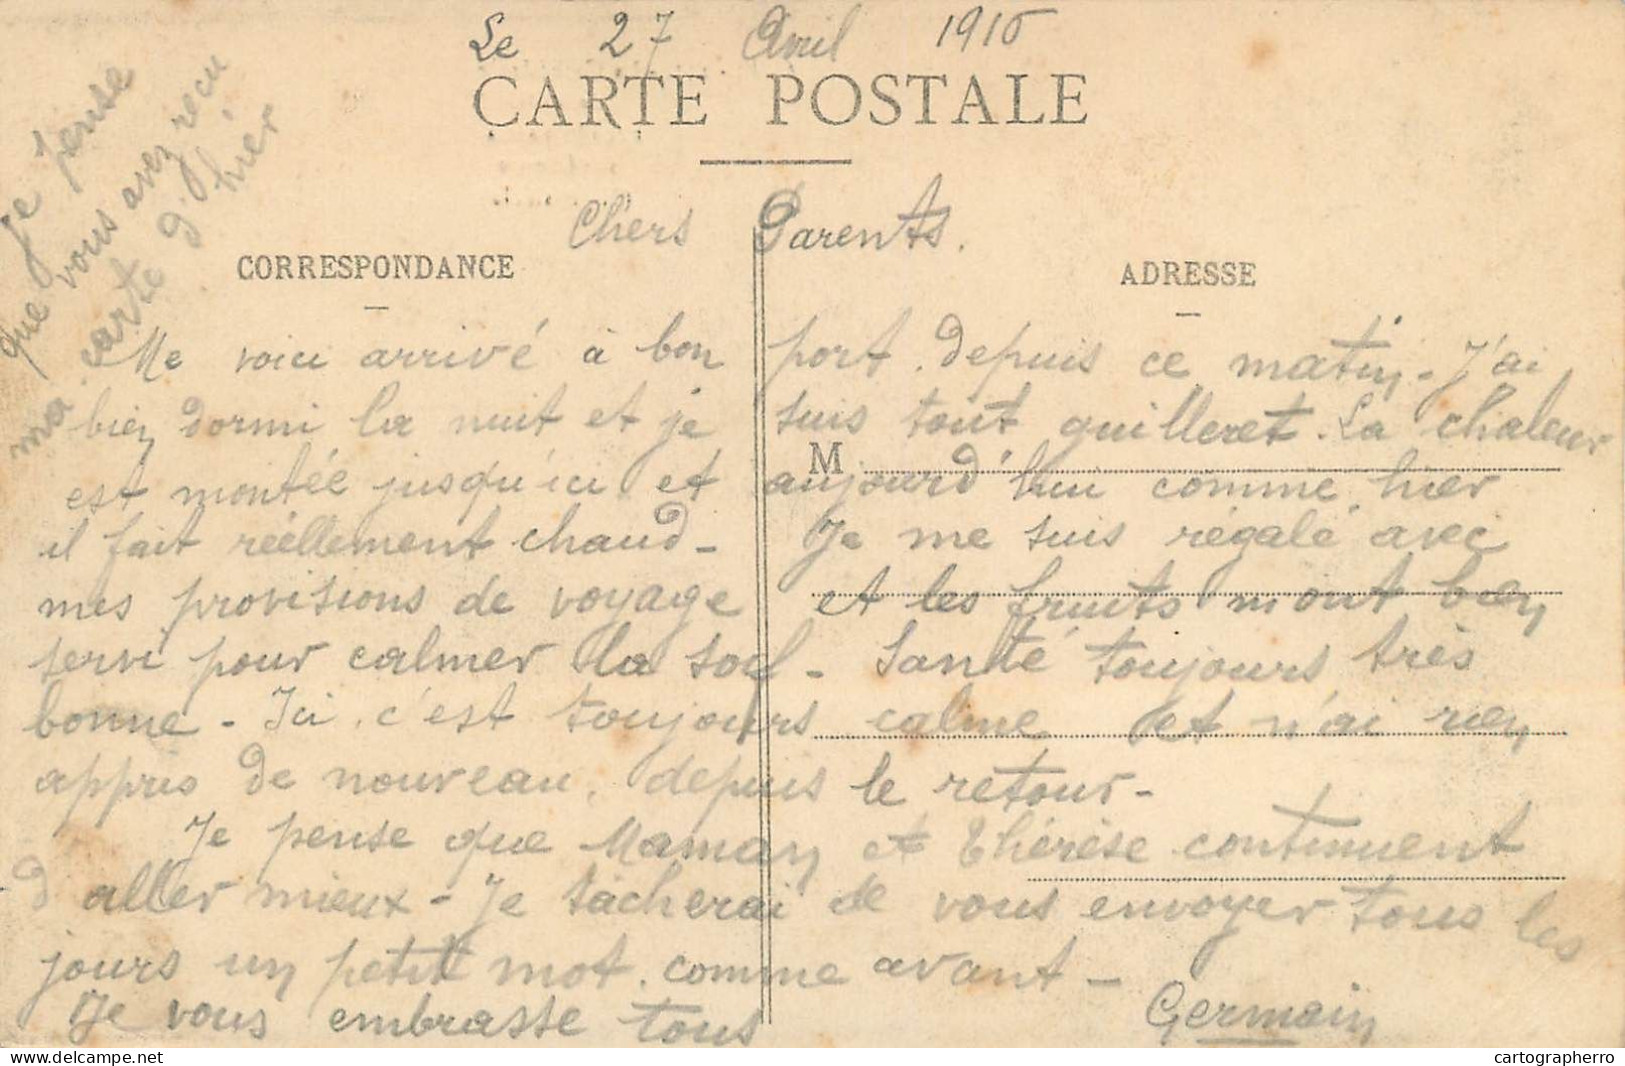 Le 27 Avril 1915
CARTE POSTALE
Je pense
que vous avez recu
ma carte d'hier
Chers Parents.
CORRESPONDANCE
ADRESSE
Me voici arrivé à bon port depuis ce matin - J'ai
bien dormi la nuit et je suis tout guilleret. La chaleur
M
est montée jusqu'ici et aujourd'hui comme hier
il fait réellement chaud - Je me suis régalé avec
mes provisions de voyage et les fruits m'ont bien
servi pour calmer la soif - Santé toujours très
bonne - Ici c'est toujours calme et n'ai rien
appris de nouveau depuis le retour -
Je pense que Maman et Thérèse continuent
d'aller mieux - Je tâcherai de vous envoyer tous les
jours un petit mot comme avant -
Je vous embrasse tous
Germain
cartographerro